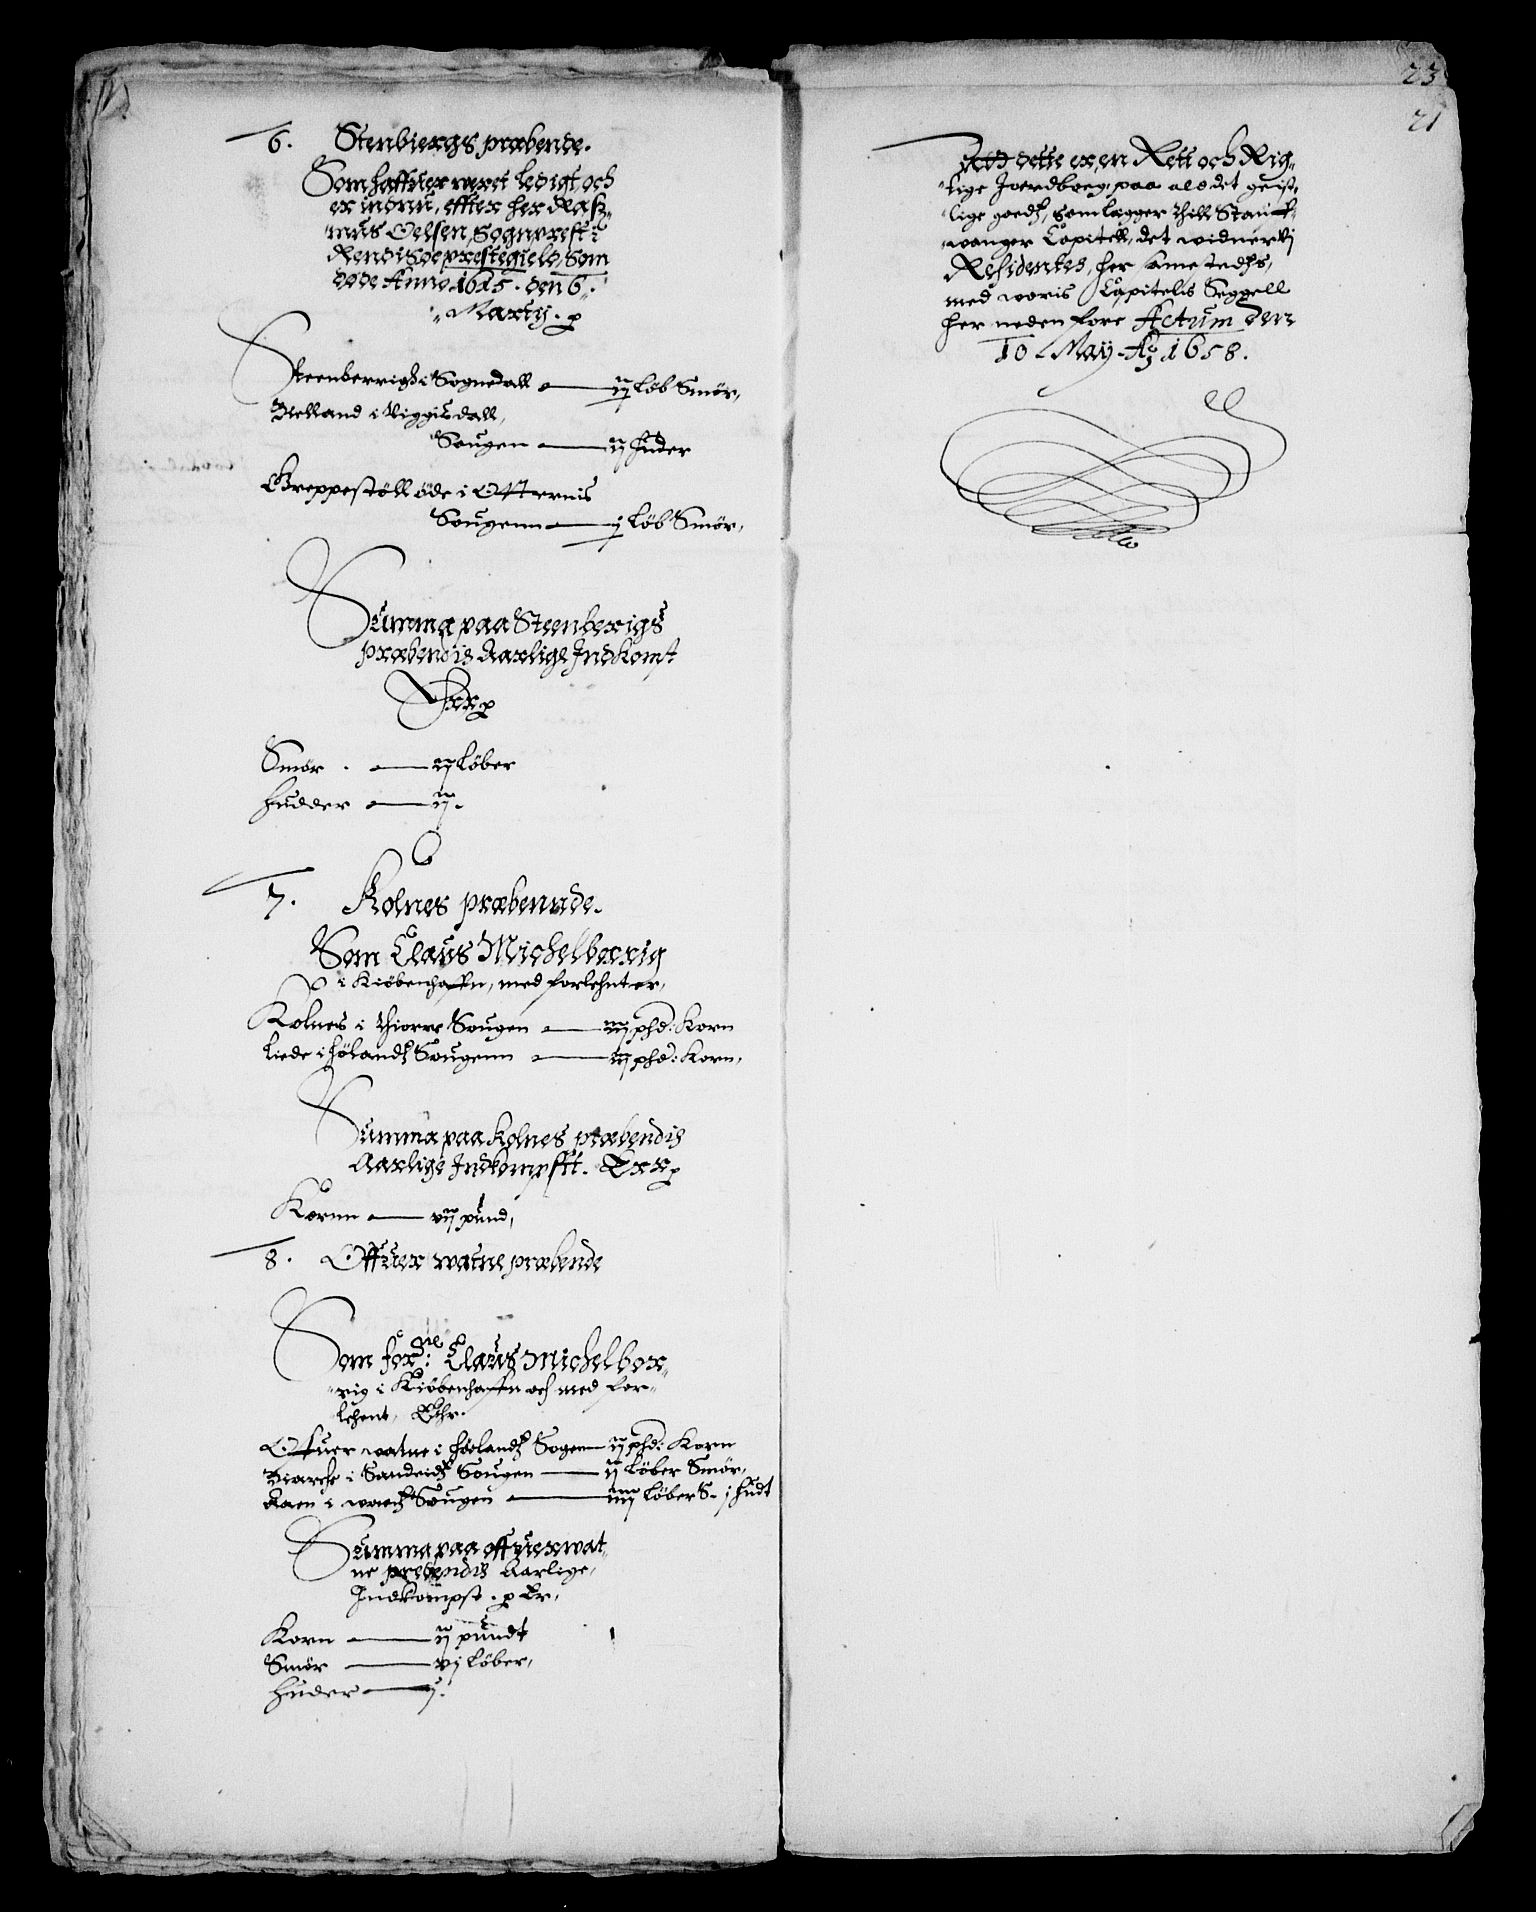 6. Stenbiergs præbende.
Som haffuer verit ledigt och
er indnu, effter her Rasz„
„mus Oelsen Sognprest i
Rendisøe prestegield, Som
døde Anno 1615. den 6.
„Martij. p
Steenberrigh i Sognedall — ij Løb Smør,
Helland i Viggisdall,
Sougen — ij Huder
Greppestöll öde i Otternis
Sougenn — j Löb Smör,
Summa paa Steenberigs
præbendis Aarlige Indkomst
Errp
Smör . — iij Löber
Hudder — ij.
7. Kolnes præbennde.
Som Claus Michelberrig
i Kiöbenhaffn, med forlehnt er,
Kolnes i Thiorre Sougen — iiij phd: Korn
Liede i Hölandz Sougenn — iij phd: Korn,
Summa paa Kolnes præbendis
Aarlige Indkompstt. Errp
Kornn — vij pund,
8. Offuer watne præbende
Som for:ne Claus Michelbor„
„rig i Kiöbenhaffn och med for„
lehent, Ehr.
Offuer watne i Höelandz Sogen — ij phd: Korn
Biarche i Sandeidz Sougen — ij Löber Smör,
Aaen i wratz Sougen — iiij Löber S. j Hudt
Summa paa offuerwat„
ne prebendis Aarlige,
Indkompst. p Er,
Korn — ij pundt
Smör — vj Löber,
Huder — j.
23
21
Att dette er en Rett och Rig„
„tige Joerdboeg, paa als det geist„
„lige goedz, som lægger thill Staüff„
„wanger Capitell, det widner Vj
Residentes, her samestedhs,
med woris Capitelis Seggell
her neden fore Actum den
10 May Ao 1658.